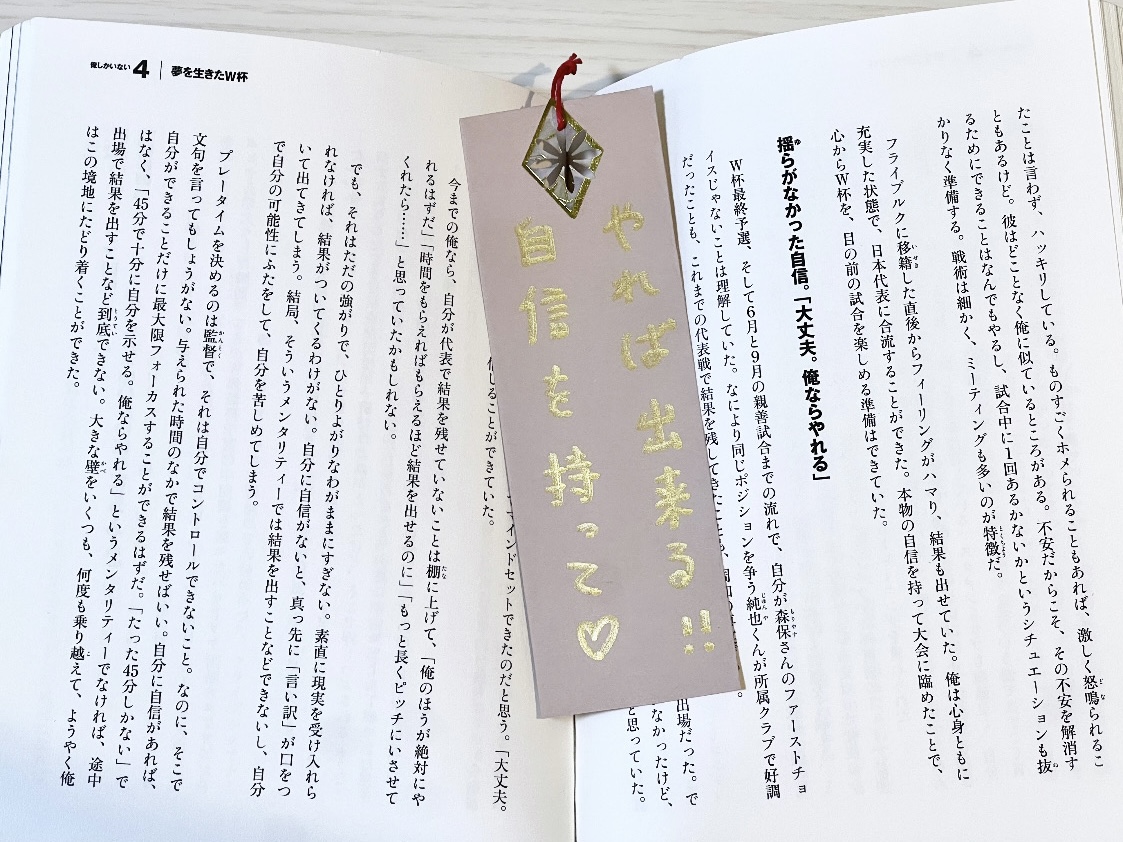 たことは言わず、ハッキリしている。ものすごくホメられることもあれば、激しく怒鳴られるこ
ともあるけど。彼はどことなく俺に似ているところがある。不安だからこそ、その不安を解消す
るためにできることはなんでもやるし、試合中に1回あるかないかというシチュエーションも抜
かりなく準備する。戦術は細かく、ミーティングも多いのが特徴だ。
フライブルクに移籍した直後からフィーリングがハマり、結果も出せていた。俺は心身ともに
充実した状態で、日本代表に合流することができた。本物の自信を持って大会に臨めたことで、
心からW杯を、目の前の試合を楽しめる準備はできていた。
揺らがなかった自信。「大丈夫。俺ならやれる」
W杯最終予選、そして6月と9月の親善試合までの流れで、自分が森保さんのファーストチョ
イスじゃないことは理解していた。なにより同じポジションを争う純也くんが所属クラブで好調
だったことも、これまでの代表戦で結果を残してきたことも、
出場だった。で
なかったけど、
と思っていた。
やれば出来る!!
自信を持って♡
マインドセットできたのだと思う。「大丈夫。
信じることができていた。
今までの俺なら、自分が代表で結果を残せていないことは棚に上げて、「俺のほうが絶対にや
れるはずだ」「時間をもらえればもらえるほど結果を出せるのに」「もっと長くピッチにいさせて
くれたら……」と思っていたかもしれない。
でも、それはただの強がりで、ひとりよがりなわがままにすぎない。素直に現実を受け入れら
れなければ、結果がついてくるわけがない。自分に自信がないと、真っ先に「言い訳」が口をつ
いて出てきてしまう。結局、そういうメンタリティーでは結果を出すことなどできないし、自分
で自分の可能性にふたをして、自分を苦しめてしまう。
プレータイムを決めるのは監督で、それは自分でコントロールできないこと。なのに、そこで
文句を言ってもしょうがない。与えられた時間のなかで結果を残せばいい。自分に自信があれば、
自分ができることだけに最大限フォーカスすることができるはずだ。「たった45分しかない」で
はなく、「45分で十分に自分を示せる。俺ならやれる」というメンタリティーでなければ、途中
出場で結果を出すことなど到底できない。大きな壁をいくつも、何度も乗り越えて、ようやく俺
はこの境地にたどり着くことができた。
俺しかいない 4 夢を生きたW杯